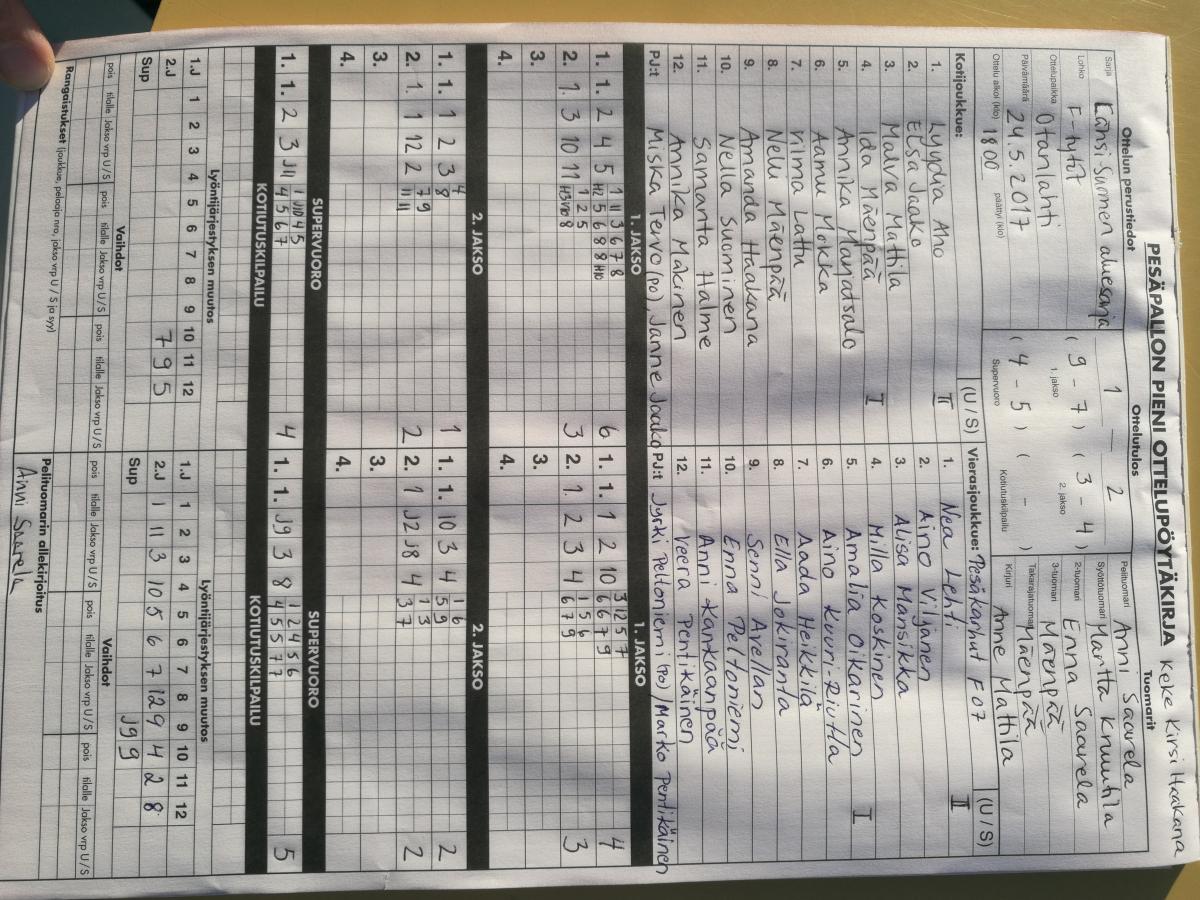 PESÄPALLON PIENI OTTELUPÖYTÄKIRJA Keke Kirsi Haakana
Ottelun perustiedot
Sarja Länsi Suomen aluesarja
Lohko F-tytöt
Ottelupaikka Otanlahti
Päivämäärä 24.5.2017
Ottelu alkoi (klo) 1800 päättyi (klo)
Ottelutulos
1 — 2
( 9 - 7 ) ( 3 - 4 )
1. jakso 2. jakso
( 4 - 5 ) ( - )
Supervuoro Kotiutuskilpailu
Tuomarit
Pelituomari Anni Saarela
Syöttötuomari Martta Knuutila
2-tuomari Enna Saarela
3-tuomari Mäenpää
Takarajatuomari Mäenpää
Kirjuri Anne Mattila
Kotijoukkue: (U / S)
1. Lyydia Aho II
2. Elsa Jaako
3. Malva Mattila
4. Ida Mäenpää I
5. Annika Marjatsalo
6. Aamu Mokka
7. Vilma Lattu
8. Nelli Mäenpää
9. Amanda Haakana
10. Nella Suominen
11. Samanta Halme
12. Annika Mäkinen
PJ:t Miska Tervo (po), Janne Jaako
Vierasjoukkue: Pesäkarhut F07 (U / S)
1. Nea Lehti II
2. Aino Viljanen
3. Alisa Mansikka
4. Milla Koskinen
5. Amalia Oikarinen I
6. Aino Kuuri-Riutta
7. Aada Heikkilä
8. Ella Jokiranta
9. Senni Avellan
10. Enna Peltoniemi
11. Anni Kankaanpää
12. Veera Pentikäinen
PJ:t Jyrki Peltoniemi (po) / Marko Pentikäinen
1. JAKSO 1. JAKSO
1. 1. 2 4 5 1 11 3 6 7 8 6
H2 5 6 8 8 H10
2. 1. 3 10 11 1 2 5 3
H3 V10 8
3.
4.
1. 1. 1 2 10 3 12 5 7 4
6 6 7 9
2. 1. 2 3 4 1 5 6 3
6 7 9
3.
4.
2. JAKSO 2. JAKSO
1. 1. 1 2 3 4 1
8
2. 1. 1 12 2 7 9 2
11 11
3.
4.
1. 1. 10 3 4 1 6 2
5 9
2. 1 J2 J8 4 3 3 2
3 7
3.
4.
SUPERVUORO SUPERVUORO
1. 1. 2 3 J11 1 J10 4 5 4
4 5 6 7
1. 1. J9 3 8 1 2 4 5 6 5
4 5 5 7 7
KOTIUTUSKILPAILU KOTIUTUSKILPAILU
Lyöntijärjestyksen muutos
1.J 1 2 3 4 5 6 7 8 9 10 11 12
2.J 7 9 5
Sup
Lyöntijärjestyksen muutos
1.J 1 2 3 4 5 6 7 8 9 10 11 12
2.J 1 11 3 10 5 6 7 12 9 4 2 8
Sup J9 9
Vaihdot
pois tilalle Jakso vrp U / S pois tilalle Jakso vrp U / S pois tilalle Jakso vrp U / S
Vaihdot
pois tilalle Jakso vrp U / S pois tilalle Jakso vrp U / S pois tilalle Jakso vrp U / S
Rangaistukset (joukkue, pelaaja nro, jakso vrp U / S ja syy)
Pelituomarin allekirjoitus
Anni Saarela